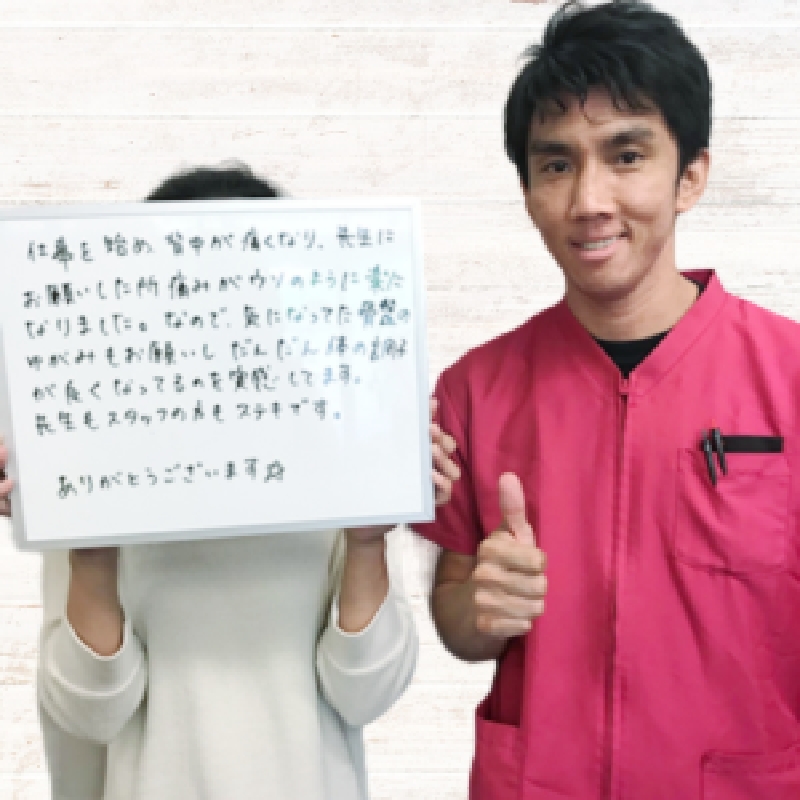 仕事を始め、背中が痛くなり、先生に
お願いした所痛みがウソのように楽に
なりました。なので、気になってた骨盤の
ゆがみもお願いし だんだん体の調子
が良くなってるのを実感してます。
先生もスタッフの方もステキです。
ありがとうございます☆